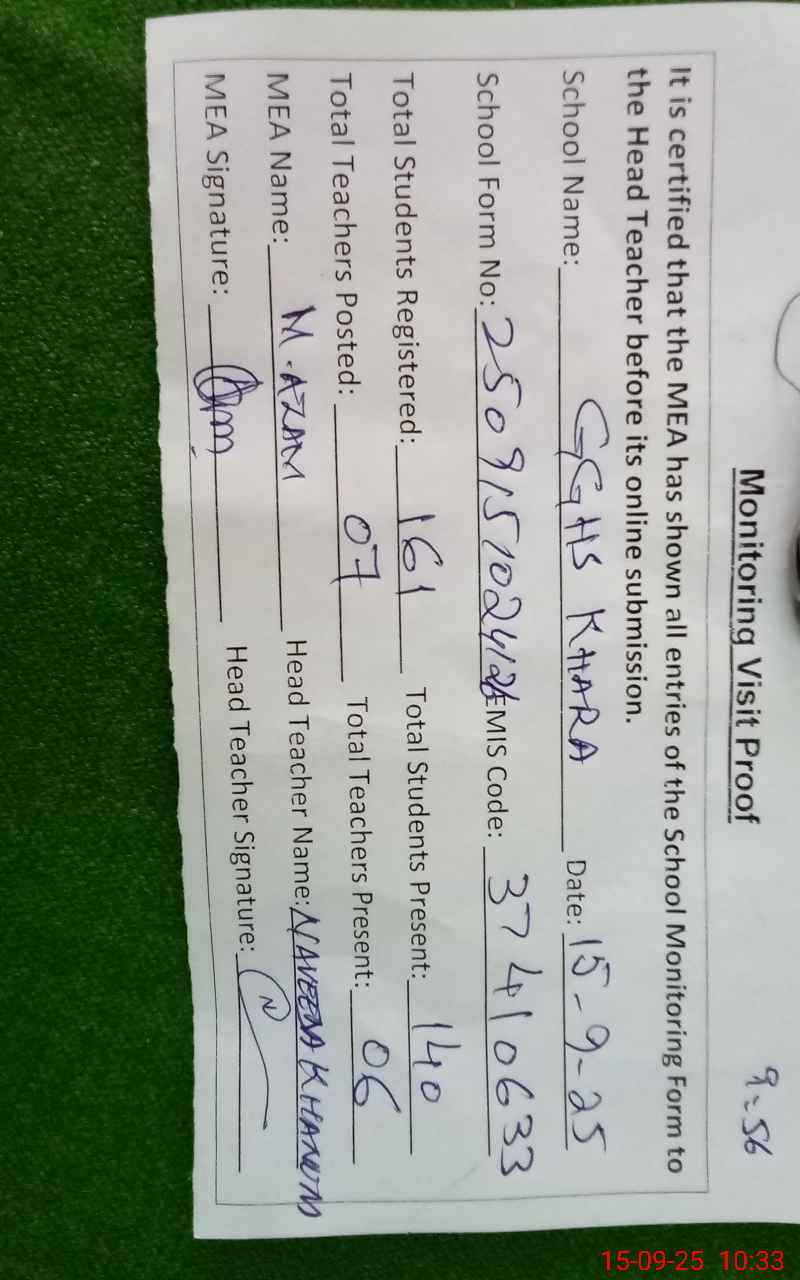 9:56
Monitoring Visit Proof
It is certified that the MEA has shown all entries of the School Monitoring Form to
the Head Teacher before its online submission.
School Name: GGHS KHARA Date: 15-9-25
School Form No: EMIS Code: 37410633
Total Students Registered: 161 Total Students Present: 140
Total Teachers Posted: 07 Total Teachers Present: 06
MEA Name: M.AZAM Head Teacher Name: NAVEEDA KHANUM
MEA Signature: Head Teacher Signature:
15-09-25 10:33